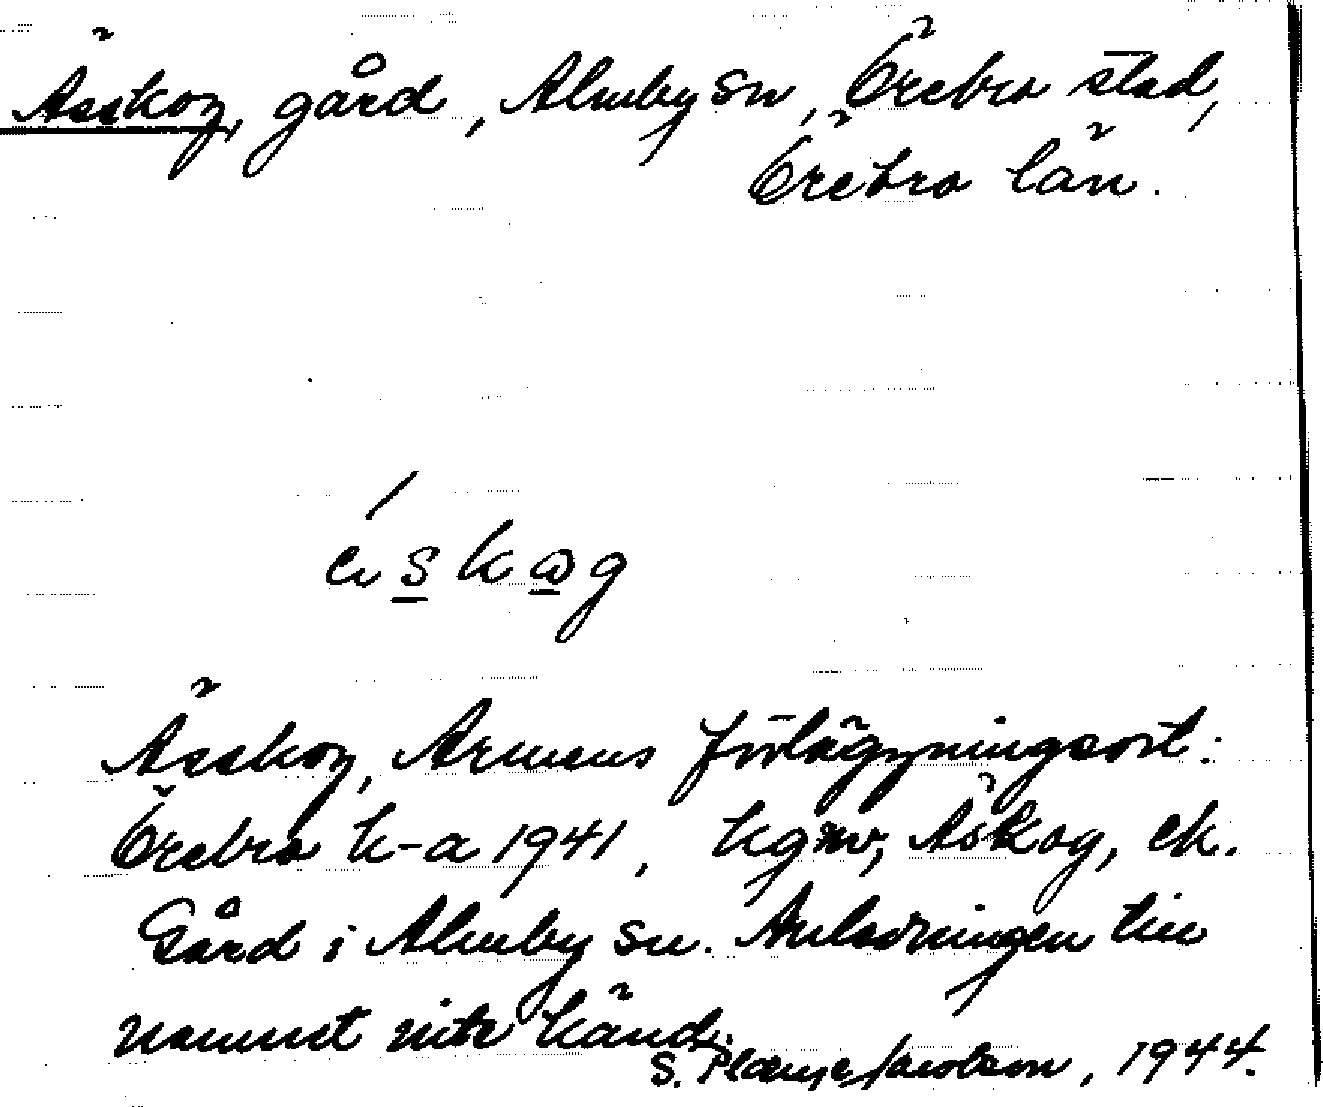 Ässkog, gård, Almby sn, Örebro stad,
Örebro län.
skog
Ässkog, Armens förläggningsort:
Örebro k-a 1941, Äskog, ek.
Gård i Almby sn. Anledningen till
namnet inte känd.
S. Jacobson, 1944.